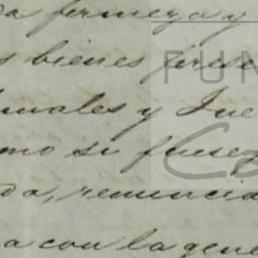 a firmeza y
s bienes prese
unales y Jue
mo si fuese
da, renuncia
a con la gene
FUN